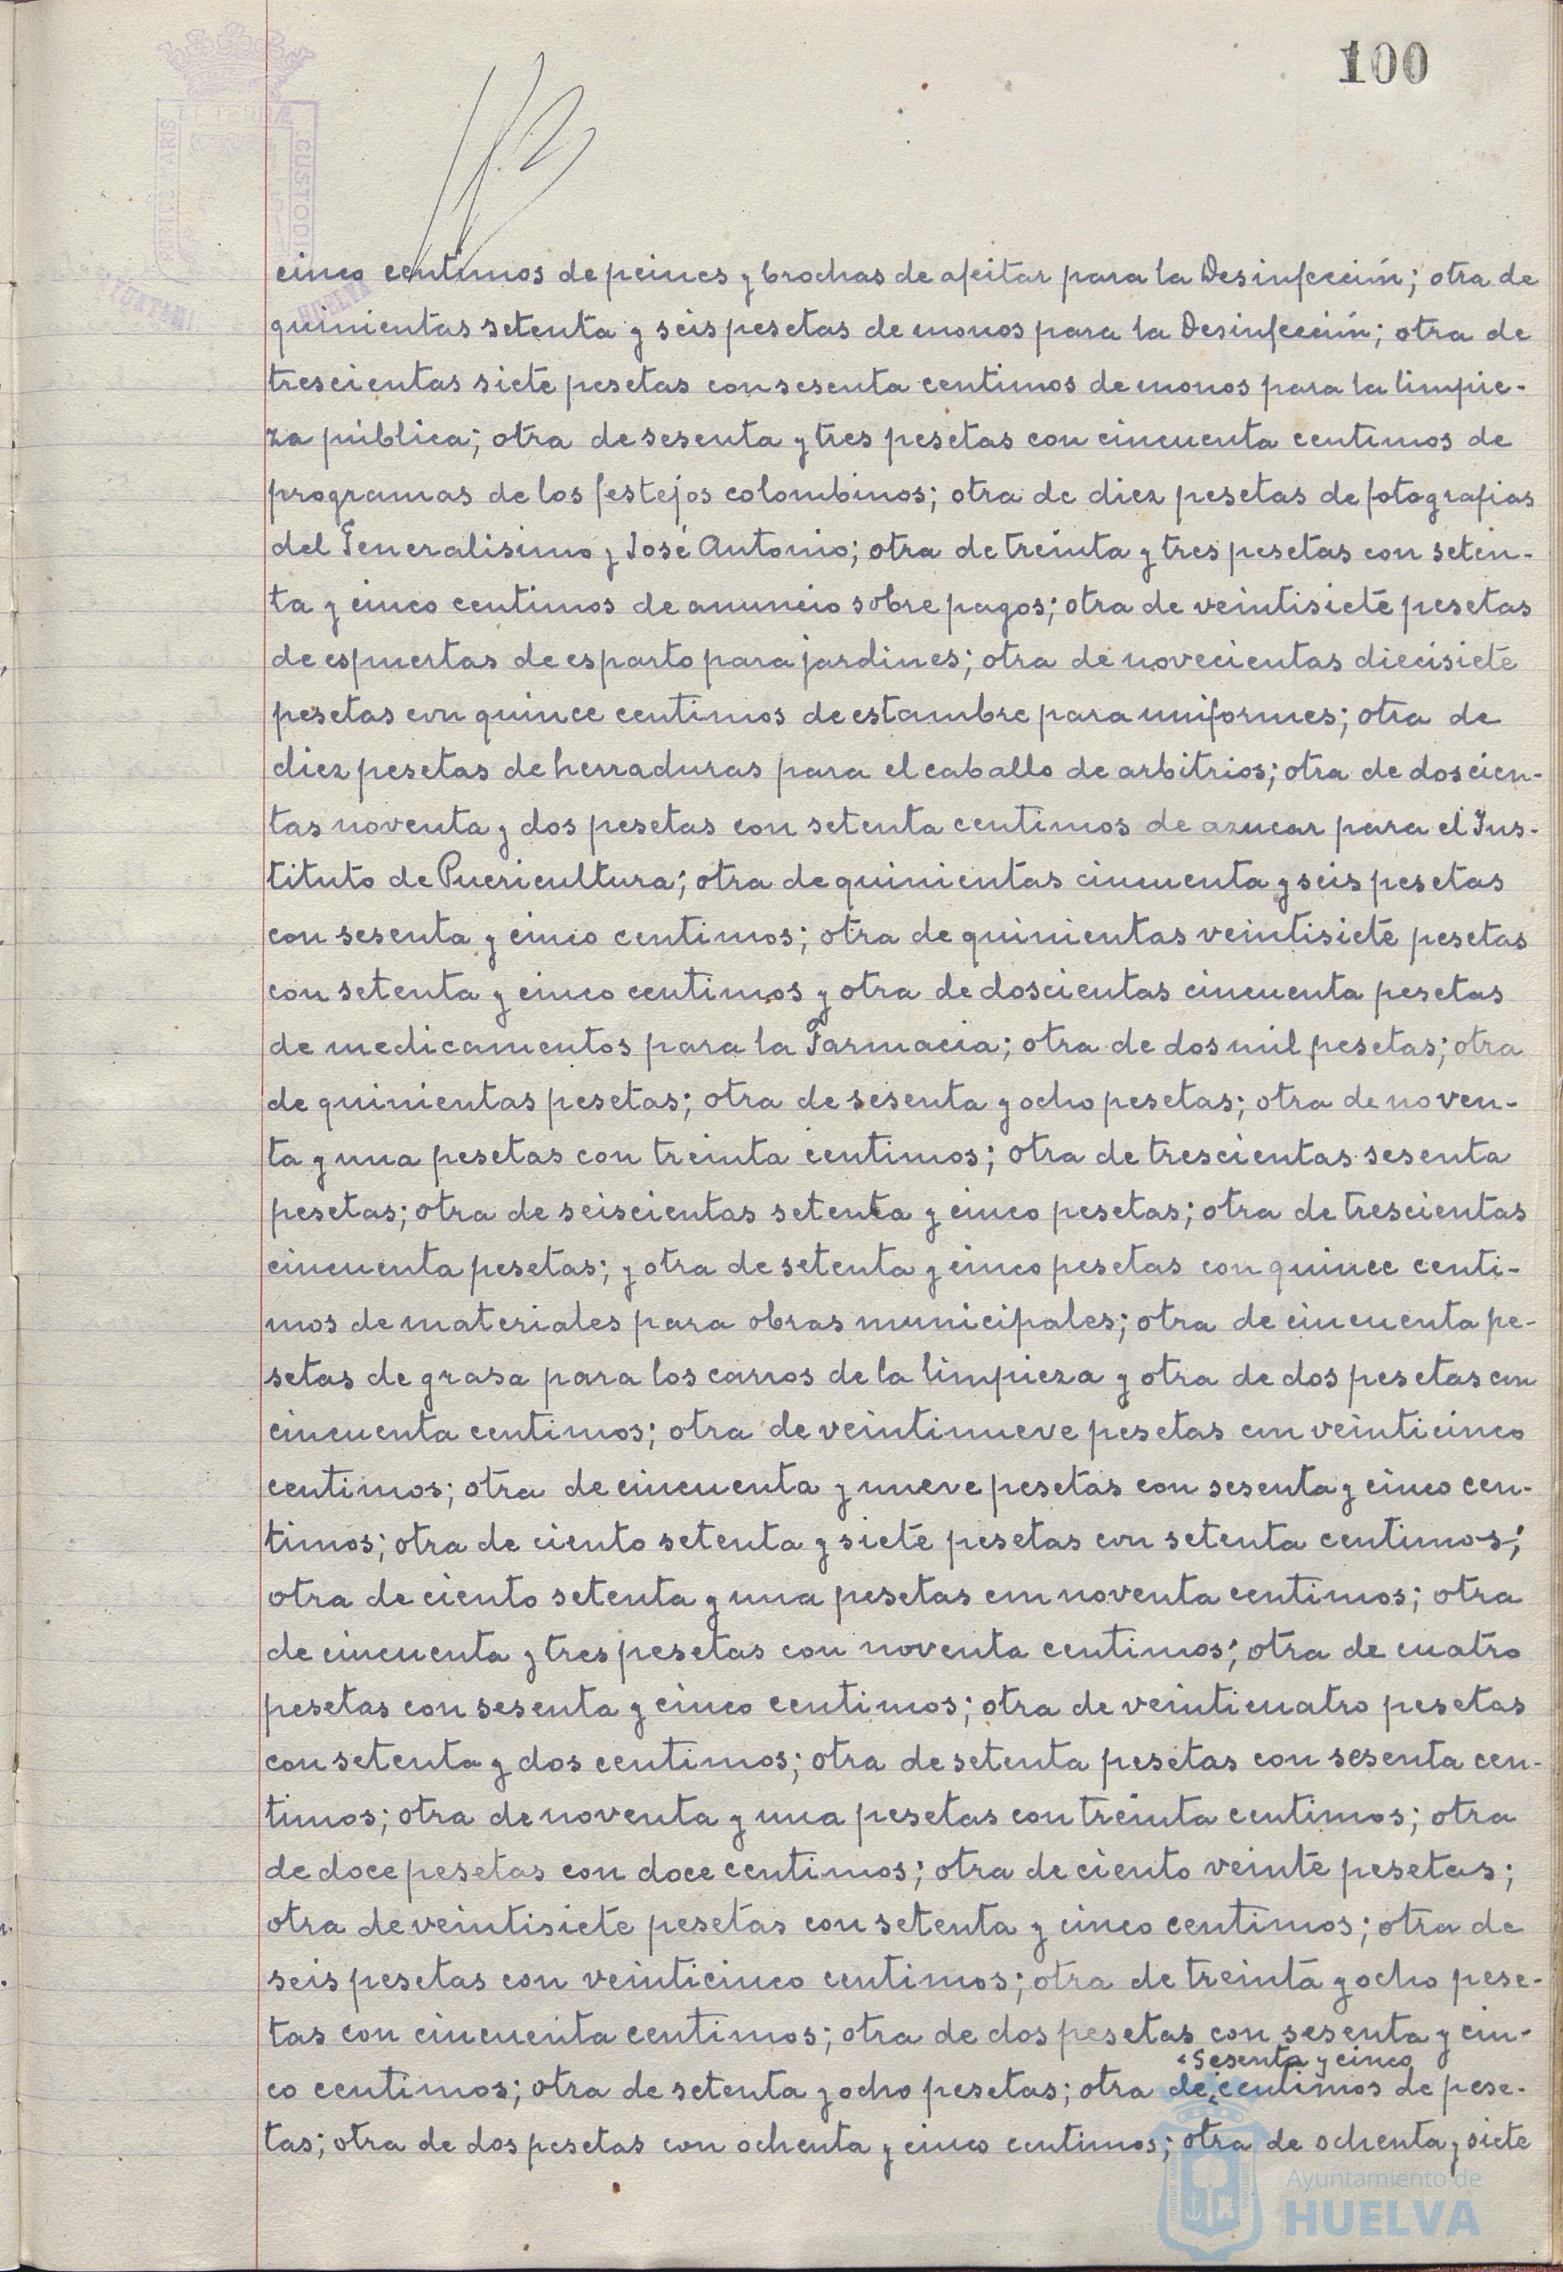 100
PORTUS MARIS ET TERRÆ CUSTODIA
AYUNTAMI HUELVA
cinco centimos de peines y brochas de afeitar para la Desinfección; otra de
quinientas setenta y seis pesetas de monos para la Desinfección; otra de
trescientas siete pesetas con sesenta centimos de monos para la limpie-
za pública; otra de sesenta y tres pesetas con cincuenta centimos de
programas de los festejos colombinos; otra de diez pesetas de fotografias
del Generalisimo y José Antonio; otra de treinta y tres pesetas con seten-
ta y cinco centimos de anuncio sobre pagos; otra de veintisiete pesetas
de espuertas de esparto para jardines; otra de novecientas diecisiete
pesetas con quince centimos de estambre para uniformes; otra de
diez pesetas de herraduras para el caballo de arbitrios; otra de doscien-
tas noventa y dos pesetas con setenta centimos de azucar para el Ins-
tituto de Puericultura; otra de quinientas cincuenta y seis pesetas
con sesenta y cinco centimos; otra de quinientas veintisiete pesetas
con setenta y cinco centimos y otra de doscientas cincuenta pesetas
de medicamentos para la Farmacia; otra de dos mil pesetas; otra
de quinientas pesetas; otra de sesenta y ocho pesetas; otra de noven-
ta y una pesetas con treinta centimos; otra de trescientas sesenta
pesetas; otra de seiscientas setenta y cinco pesetas; otra de trescientas
cincuenta pesetas; y otra de setenta y cinco pesetas con quince centi-
mos de materiales para obras municipales; otra de cincuenta pe-
setas de grasa para los carros de la limpieza y otra de dos pesetas con
cincuenta centimos; otra de veintinueve pesetas con veinticinco
centimos; otra de cincuenta y nueve pesetas con sesenta y cinco cen-
timos; otra de ciento setenta y siete pesetas con setenta centimos;
otra de ciento setenta y una pesetas con noventa centimos; otra
de cincuenta y tres pesetas con noventa centimos; otra de cuatro
pesetas con sesenta y cinco centimos; otra de veinticuatro pesetas
con setenta y dos centimos; otra de setenta pesetas con sesenta cen-
timos; otra de noventa y una pesetas con treinta centimos; otra
de doce pesetas con doce centimos; otra de ciento veinte pesetas;
otra de veintisiete pesetas con setenta y cinco centimos; otra de
seis pesetas con veinticinco centimos; otra de treinta y ocho pese-
tas con cincuenta centimos; otra de dos pesetas con sesenta y cin-
sesenta y cinco
co centimos; otra de setenta y ocho pesetas; otra de centimos de pese-
tas; otra de dos pesetas con ochenta y cinco centimos; otra de ochenta y siete
Ayuntamiento de
HUELVA